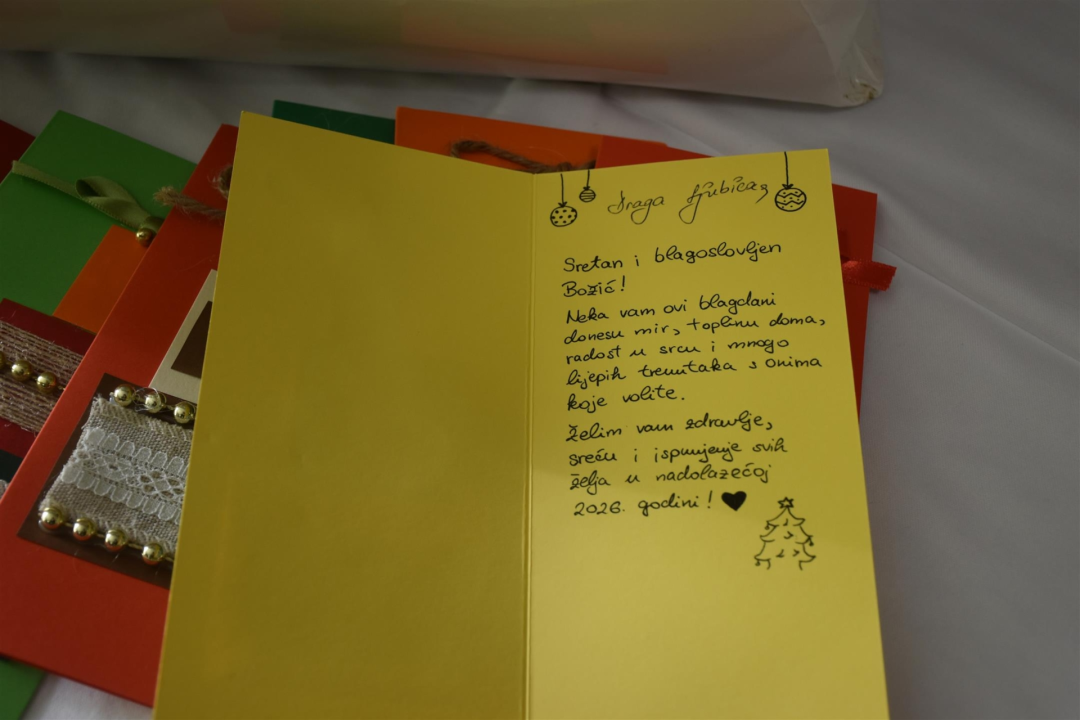 Draga Ljubica,
Sretan i blagoslovljen
Božić!
Neka vam ovi blagdani
donesu mir, toplinu doma,
radost u srcu i mnogo
lijepih trenutaka s onima
koje volite.
Želim vam zdravlje,
sreću i ispunjenje svih
želja u nadolazećoj
2026. godini!